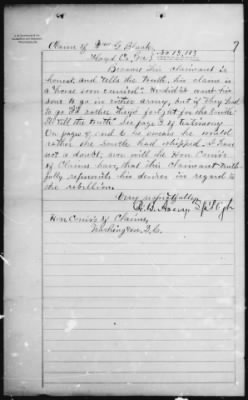 7
Claim of Wm G Black
Floyd Co, Ga.} No 13,103
Because this claimant is
honest and tells the truth, his claim is
a "horse soon curried". He didn't want his
sons to go in either army, but if they had
to go "I'd rather they'd for the South"
I'll tell the truth" See page 3 of testimony
On pages 5 and 6 he swears he would
rather the South had whipped. I have
not a doubt, nor will the Hon Com'rs
of Claims have, that this claimant truth-
fully represents his desires in regard to
the rebellion.
Very respectfully
Sp'l Agt
Hon Com'rs of Claims,
Washington, D.C.